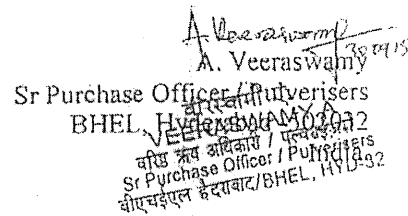 A. Veeraswamy
30/09/15
A. Veeraswamy
Sr Purchase Officer / Pulverisers
BHEL, Hyderabad - 502032
India
वीरस्वामी ए
VEERASWAMY A
वरिष्ठ क्रय अधिकारी / पल्वराइजर्स
Sr Purchase Officer / Pulverisers
बीएचईएल हैदराबाद/BHEL, HYD-32